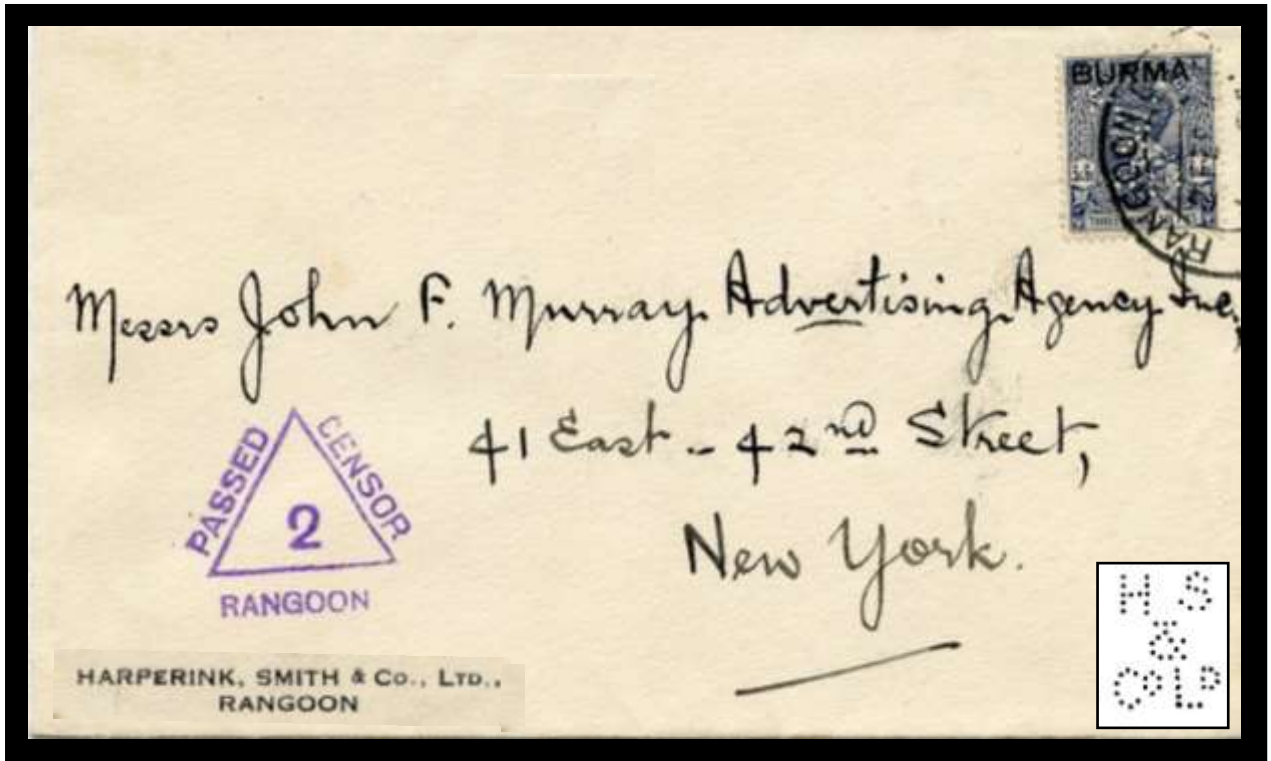 BURMA
RANGOON
Messrs John F. Murray Advertising Agency Inc.,
41 East - 42nd Street,
New York.
PASSED CENSOR
2
RANGOON
HARPERINK, SMITH & Co., LTD.,
RANGOON
H S
&
Co LD